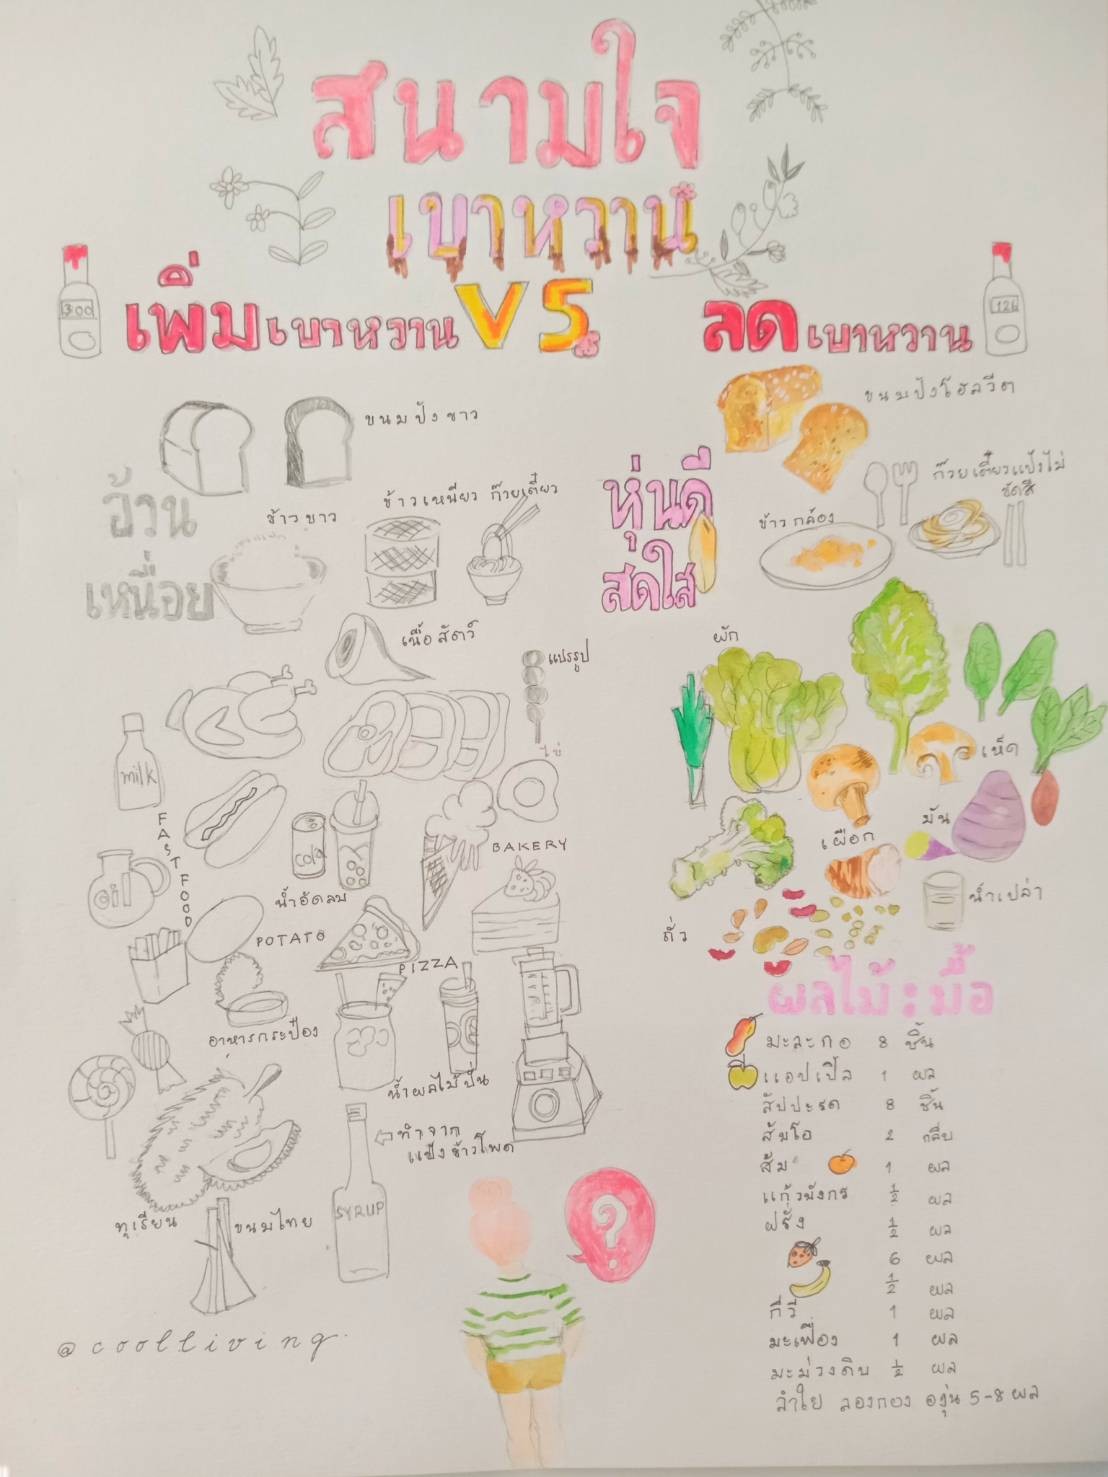 สนามใจ
เบาหวาน
เพิ่มเบาหวาน VS ลดเบาหวาน
300
126
ขนมปังขาว
อ้วน
เหนื่อย
ข้าวขาว
ข้าวเหนียว ก๊วยเตี๋ยว
เนื้อสัตว์
แปรรูป
ไข่
milk
FAST FOOD
cola
น้ำอัดลม
BAKERY
oil
POTATO
PIZZA
อาหารกระป๋อง
น้ำผลไม้ปั่น
ทำจาก
แป้งข้าวโพด
SYRUP
ทุเรียน
ขนมไทย
@coolliving.
?
ขนมปังโฮลวีต
หุ่นดี
สดใส
ข้าวกล้อง
ก๊วยเตี๋ยวแป้งไม่
ขัดสี
ผัก
เห็ด
มัน
เผือก
น้ำเปล่า
ถั่ว
ผลไม้:มื้อ
มะละกอ 8 ชิ้น
แอปเปิ้ล 1 ผล
สัปปะรด 8 ชิ้น
ส้มโอ 2 กลีบ
ส้ม 1 ผล
แก้วมังกร ½ ผล
ฝรั่ง ½ ผล
6 ผล
½ ผล
กีวี 1 ผล
มะเฟือง 1 ผล
มะม่วงดิบ ½ ผล
ลำใย ลองกอง องุ่น 5-8 ผล